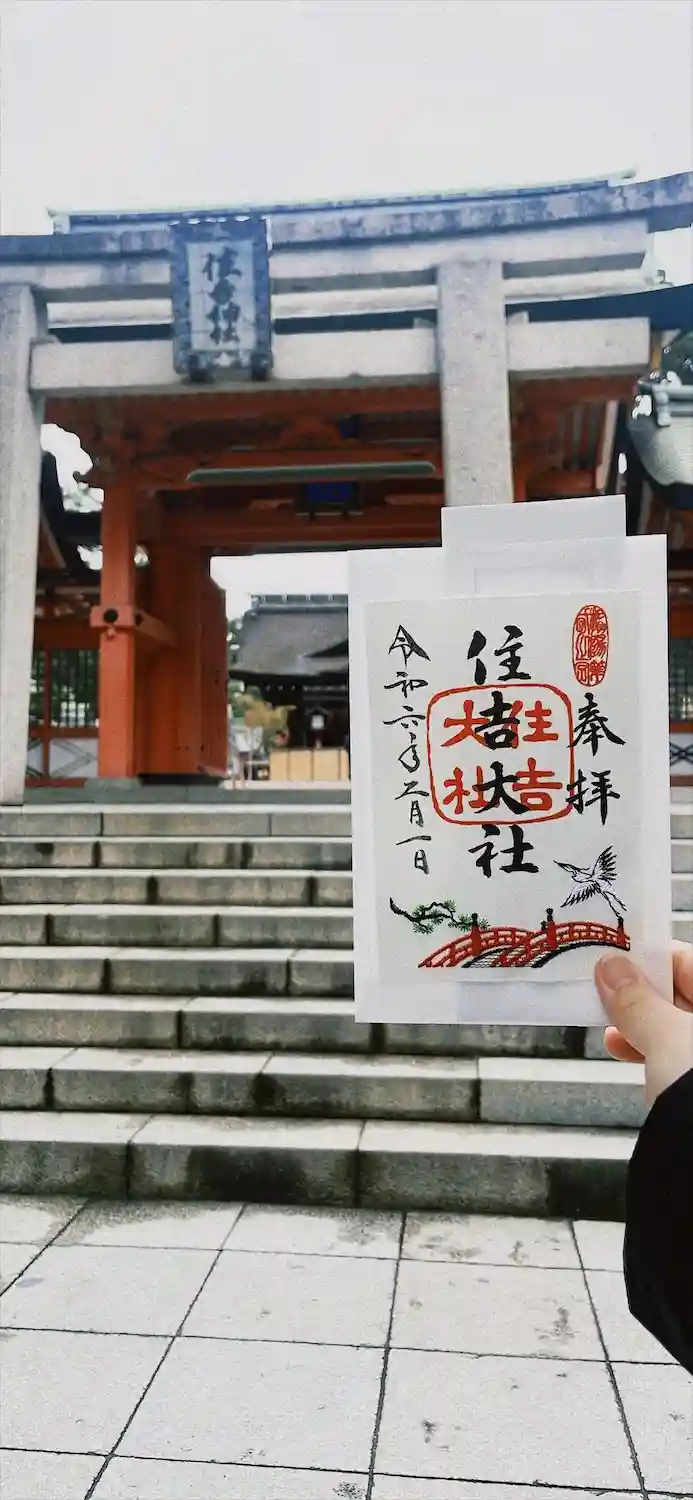 住吉神社
奉拝
住吉大社
住吉大社
令和六年二月一日